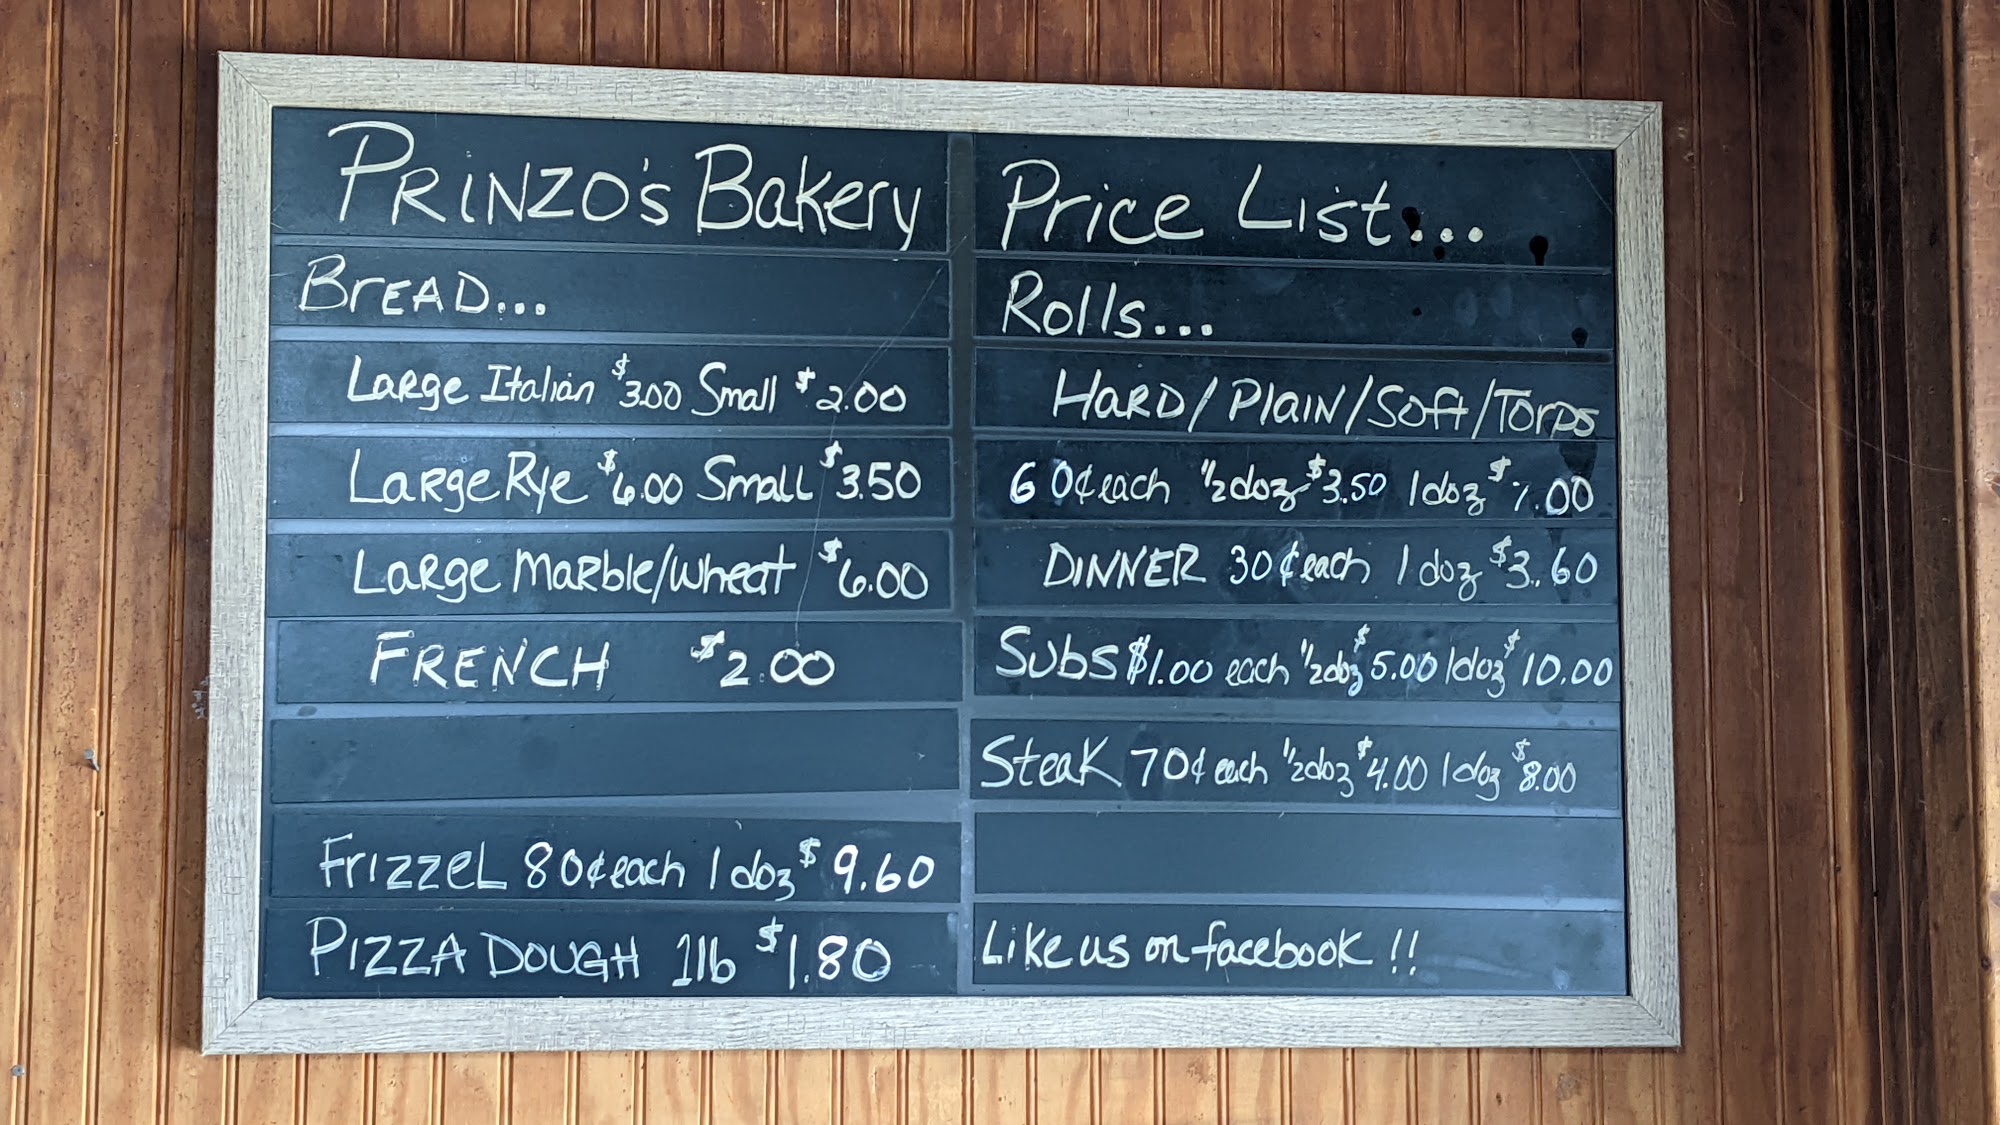 PRINZO's Bakery
BreAD...
Large Italian $3.00 Small $2.00
Large Rye $6.00 Small $3.50
Large Marble/Wheat $6.00
FRENCH $2.00
FrizzeL 80¢ each 1 doz $9.60
PIZZA DOUGH 1lb $1.80
Price List...
Rolls...
HARD/PlAIN/Soft/Torps
60¢ each 1/2 doz $3.50 1 doz $7.00
DINNER 30¢ each 1 doz $3.60
Subs $1.00 each 1/2 doz $5.00 1 doz $10.00
Steak 70¢ each 1/2 doz $4.00 1 doz $8.00
Like us on facebook !!